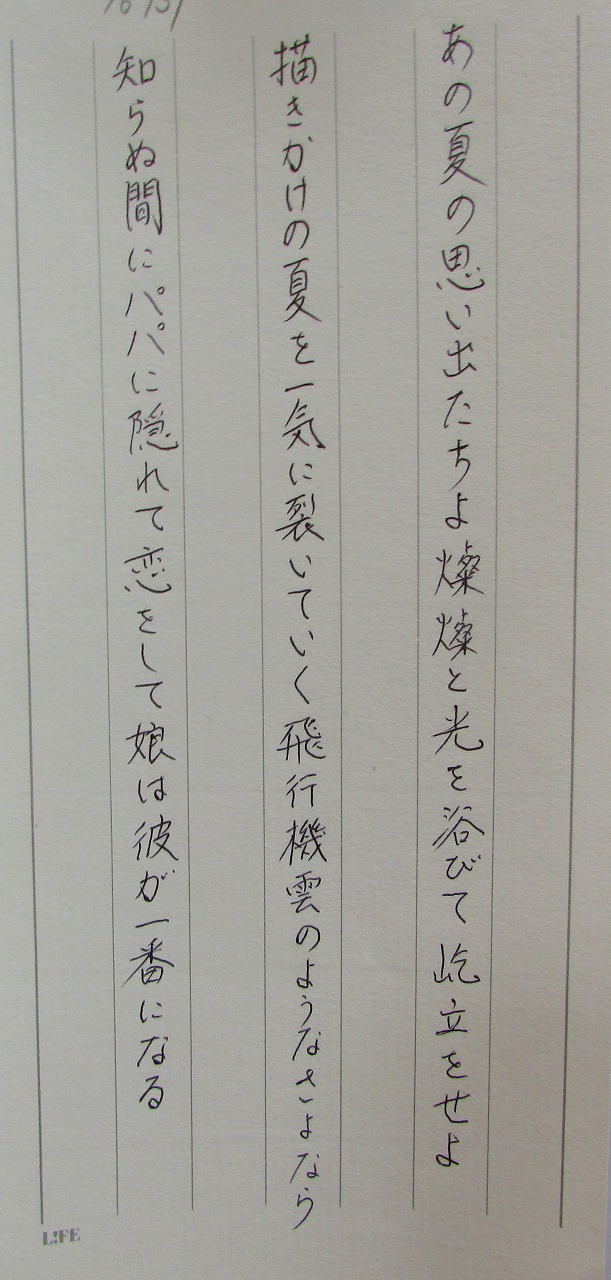 あの夏の思い出たちよ燦燦と光を浴びて屹立をせよ
描きかけの夏を一気に裂いていく飛行機雲のようなさよなら
知らぬ間にパパに隠れて恋をして娘は彼が一番になる
L!FE